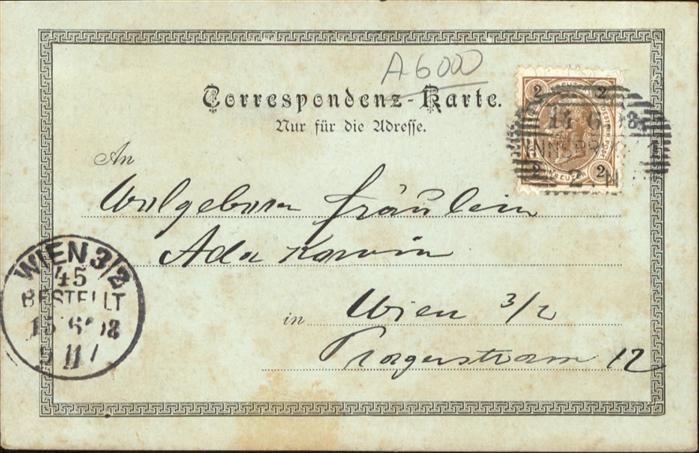 A6000
Correspondenz-Karte.
Nur für die Adresse.
2 2
2 2
14 6 98
INNSBRUCK
An
Wolgeboren Fräulein
Ada
in Wien 3/2
12
WIEN 3/2
45
BESTELLT
15 6 98